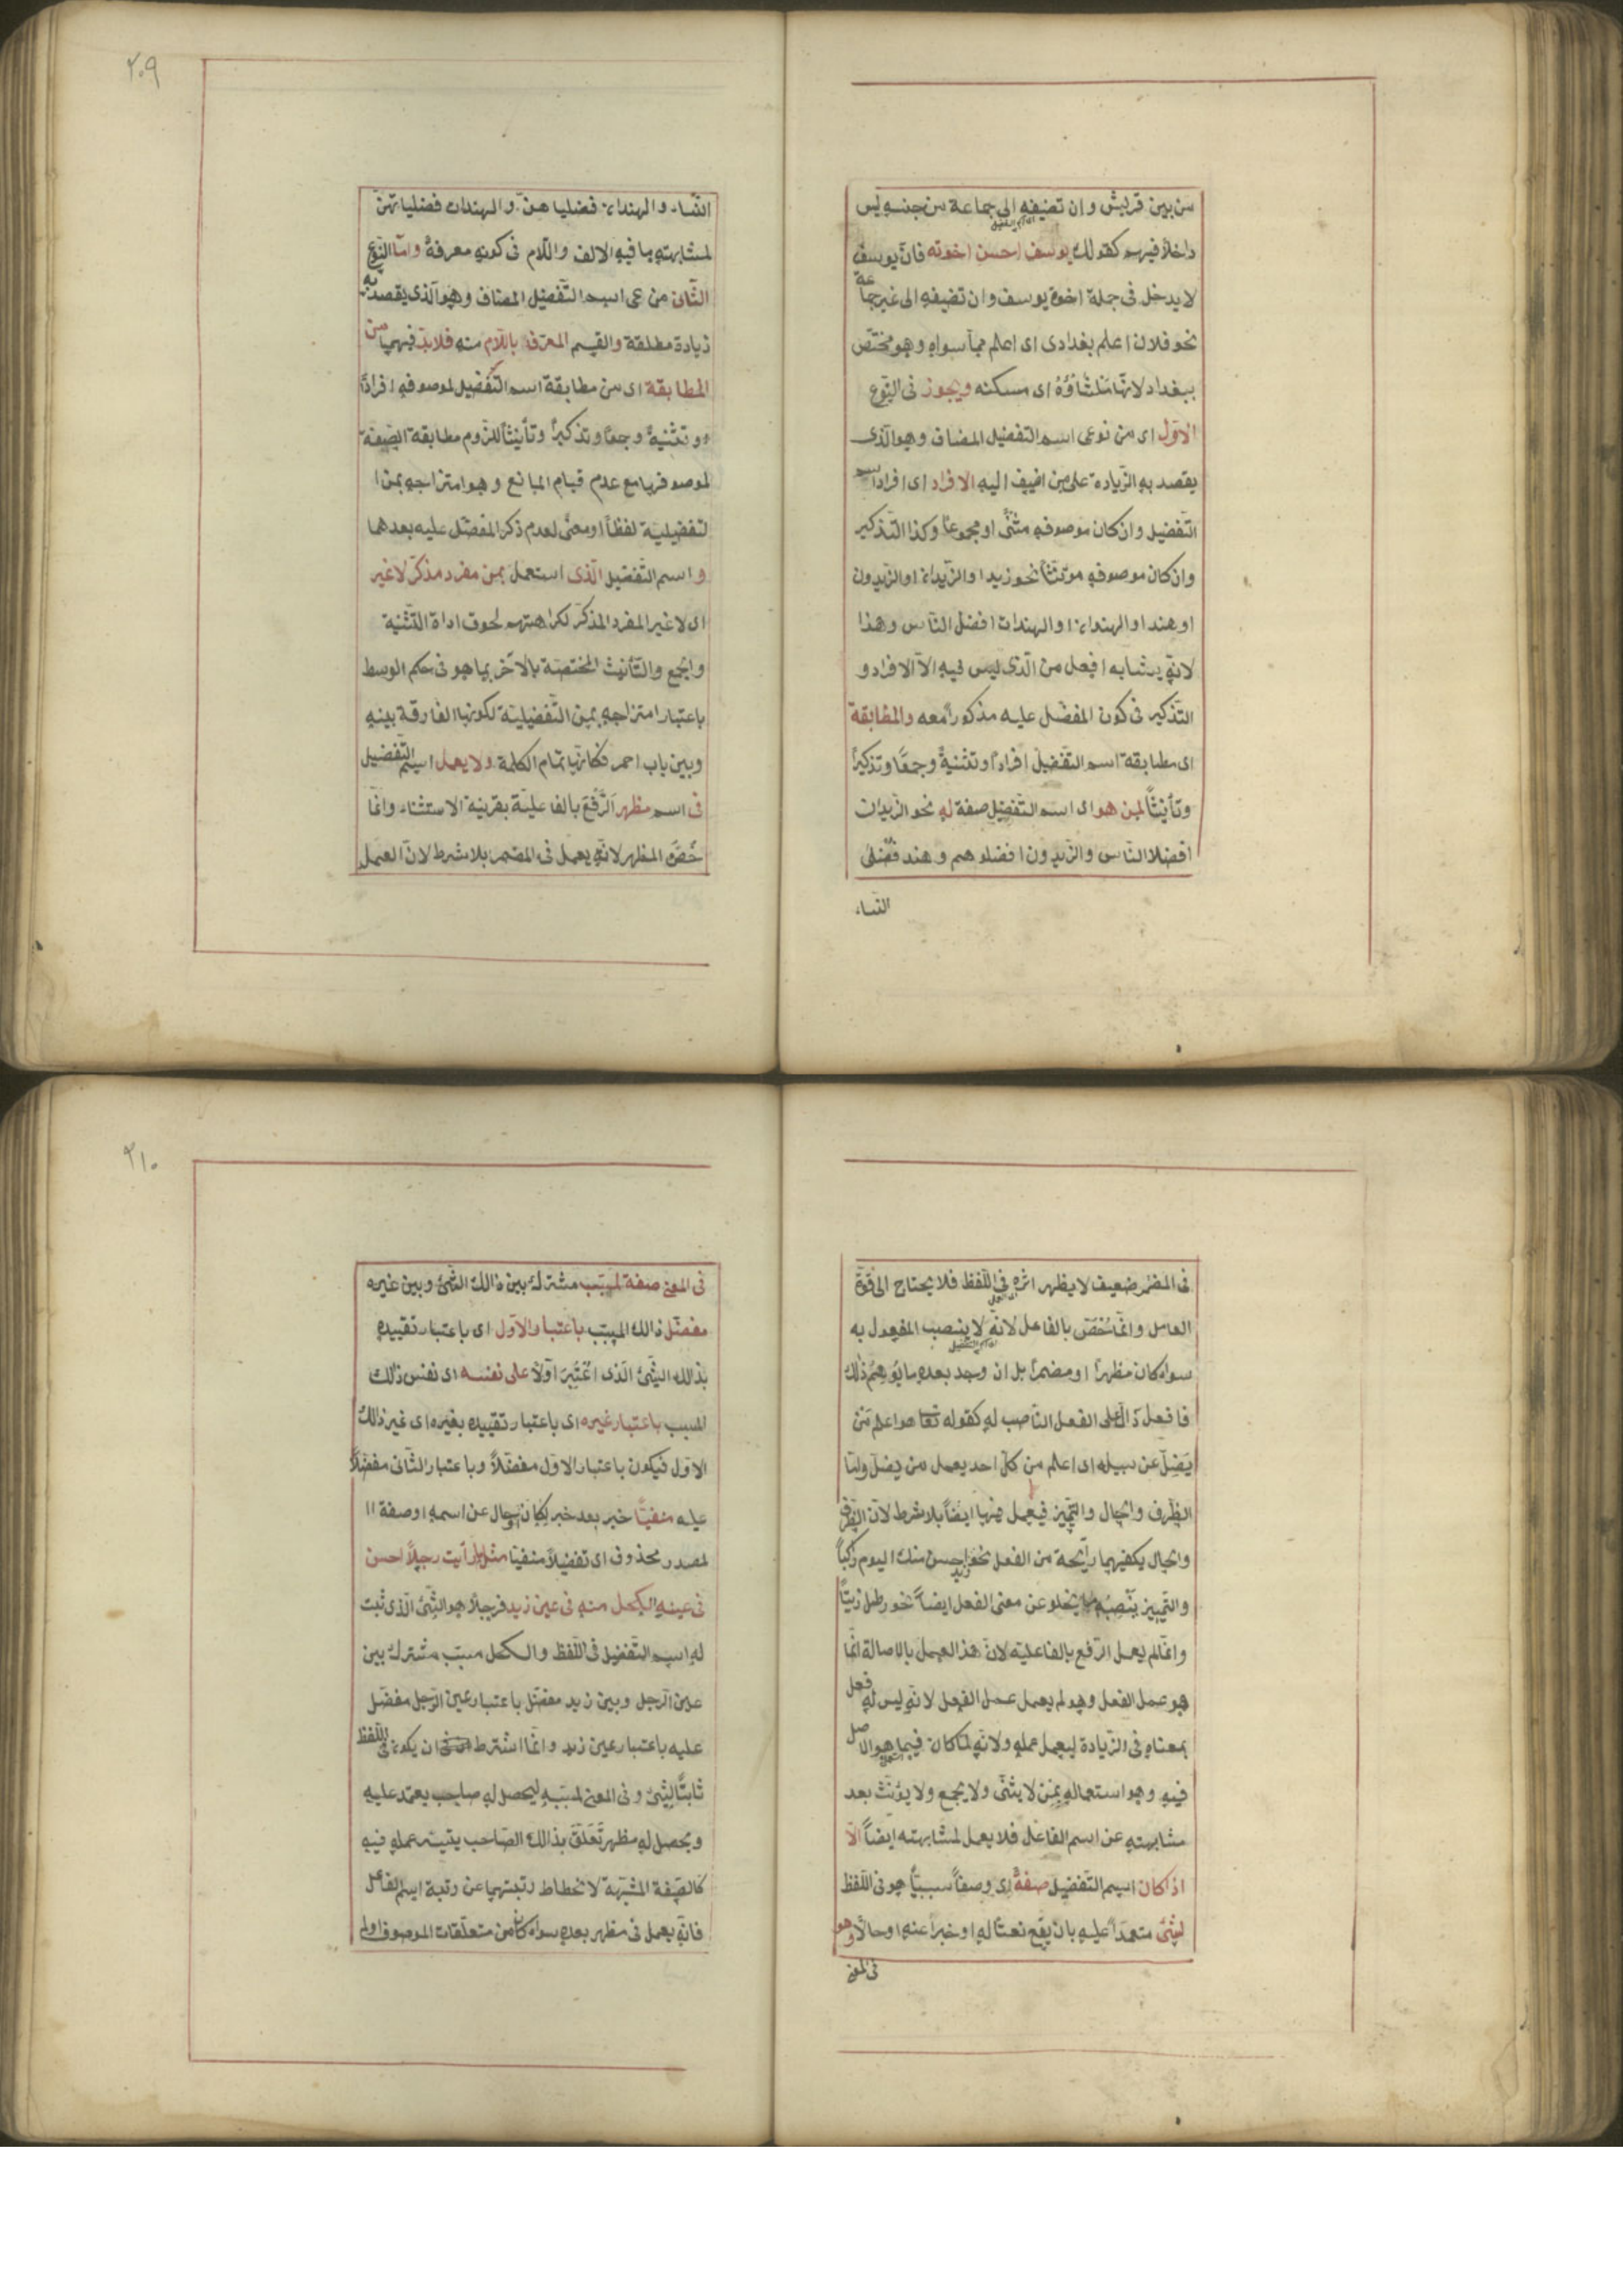 من بين قريش وان تضيفه الى جماعة من جنسه ليس
داخلاً فيهم كقولك يوسف احسن اخوته فانّ يوسف
لا يدخل فى جملة اخوة يوسف وان تضيفه الى غير جماعة
نحو فلان اعلم بغدادى اى اعلم ممّا سواه وهو مختصّ
ببغداد لانّها منشأؤه اى مسكنه ويجوز فى النّوع
الاوّل اى من نوعى اسم التفضيل المضاف وهو الّذى
يقصد به الزّيادة على من اضيف اليه الافراد اى افراد اسم
التّفضيل وان كان موصوفه مثنّى او مجموعاً وكذا التّذكير
وان كان موصوفه مونّثاً نحو زيد او الزّيدان او الزّيدون
او هند او الهندان او الهندات افضل النّاس وهذا
لانّه يشابه افعل من الّذى ليس فيه الاّ الافراد و
التّذكير فى كون المفضّل عليه مذكوراً معه والمطابقة
اى مطابقة اسم التّفضيل افراداً وتثنيةً وجمعاً وتذكيراً
وتأنيثاً لمن هو اى اسم التّفضيل صفة له نحو الزّيدان
افضلا النّاس والزّيدون افضلوهم وهند فضلى
النّساء
٢٠٩
النّساء والهندان فضلياهنّ والهندات فضلياتهنّ
لمشابهته ما فيه الالف واللّام فى كونه معرفةً وامّا النّوع
الثّانى من نوعى اسم التّفضيل المضاف وهو الّذى يقصد به
زيادة مطلقة والقسم المعرّف باللّام منه فلا بدّ فيهما من
المطابقة اى من مطابقة اسم التّفضيل لموصوفه افراداً
و تثنيةً وجمعاً وتذكيراً وتأنيثاً للزوم مطابقة الصّفة
لموصوفها مع عدم قيام المانع وهو امتزاجه بمن ا
لتفضيليّة لفظاً او معنًى لعدم ذكر المفضّل عليه بعدهما
و اسم التّفضيل الّذى استعمل بمن مفرد مذكّر لا غير
اى لا غير المفرد المذكّر لكراهتهم لحوق اداة التّثنية
والجمع والتّأنيث المختصّة بالآخر بما هو فى حكم الوسط
باعتبار امتزاجه بمن التّفضيليّة لكونها الفارقة بينه
وبين باب احمر فكانّها تمام الكلمة ولا يعمل اسم التّفضيل
فى اسم مظهر الرّفع بالفاعليّة بقرينة الاستثناء وانّما
خصّ المظهر لانّه يعمل فى المضمر بلا شرط لانّ العمل
فى المضمر ضعيف لا يظهر اثره فى اللّفظ فلا يحتاج الى قوّة
العامل وانّما خُصّ بالفاعل لانّه لا ينصب المفعول به
سواء كان مظهراً او مضمراً بل ان وجد بعده ما يُوهِمُ ذلك
فافعل دالّ على الفعل النّاصب له كقوله تعا هو اعلم مَن
يَضِلّ عن سبيله اى اعلم من كلّ احد يعمل من يضلّ وامّا
الظّرف والحال والتّمييز فيعمل فيها ايضاً بلا شرط لانّ الظّرف
والحال يكفيهما رائحة من الفعل نحو زيد احسن منك اليوم راكباً
والتّمييز يَنْصِبُه ما يخلو عن معنى الفعل ايضاً نحو رطل زيتاً
وانّما لم يعمل الرّفع بالفاعليّة لانّ هذا العمل بالاصالة انّما
هو عمل الفعل وهو لم يعمل عمل الفعل لانّه ليس له فعل
بمعناه فى الزّيادة ليعمل عمله ولانّه لمّا كان فيما هو الاصل
فيه وهو استعماله بمن لا يثنّى ولا يجمع ولا يؤنّث بعد
مشابهته عن اسم الفاعل فلا يعمل لمشابهته ايضاً الّا
اذا كان اسم التّفضيل صفةً اى وصفاً سببيّاً هو فى اللّفظ
لشئ معتمداً عليه بان يقع نعتاً له او خبراً عنه او حالاً وهو
فى المعنى
٢١٠
فى المعنى صفة لمسبّب مشترك بين ذالك الشّئ وبين غيره
مفضّل ذالك المسبّب باعتبار الاوّل اى باعتبار تقييده
بذالك الشّئ الّذى اعْتُبِرَ اوّلاً على نفسه اى نفس ذالك
المسبب باعتبار غيره اى باعتبار تقييده بغيره اى غير ذالك
الاوّل فيكون باعتبار الاوّل مفضّلاً وباعتبار الثّانى مفضّلاً
عليه منفيّاً خبر بعد خبر لكان او حال عن اسمه او صفة ا
لمصدر محذوف اى تفضيلاً منفيّا مثل ما رأيت رجلاً احسن
فى عينه الكحل منه فى عين زيد فرجلاً هو الشّئ الّذى ثبت
له اسم التّفضيل فى اللّفظ والكحل مسبّب مشترك بين
عين الرّجل وبين زيد مفضّل باعتبار عين الرّجل مفضّل
عليه باعتبار عين زيد وانّما اشترط ان يكون فى اللّفظ
ثابتاً لشئ وفى المعنى لمسبّبه ليحصل له صاحب يعتمد عليه
ويحصل له مظهر تَعَلَّقَ بذالك الصّاحب يتيسّر عمله فيه
كالصّفة المشبّهة لانحطاط رتبتهما عن رتبة اسم الفاعل
فانّه يعمل فى مظهر بعده سواء كان من متعلّقات الموصوف او لم